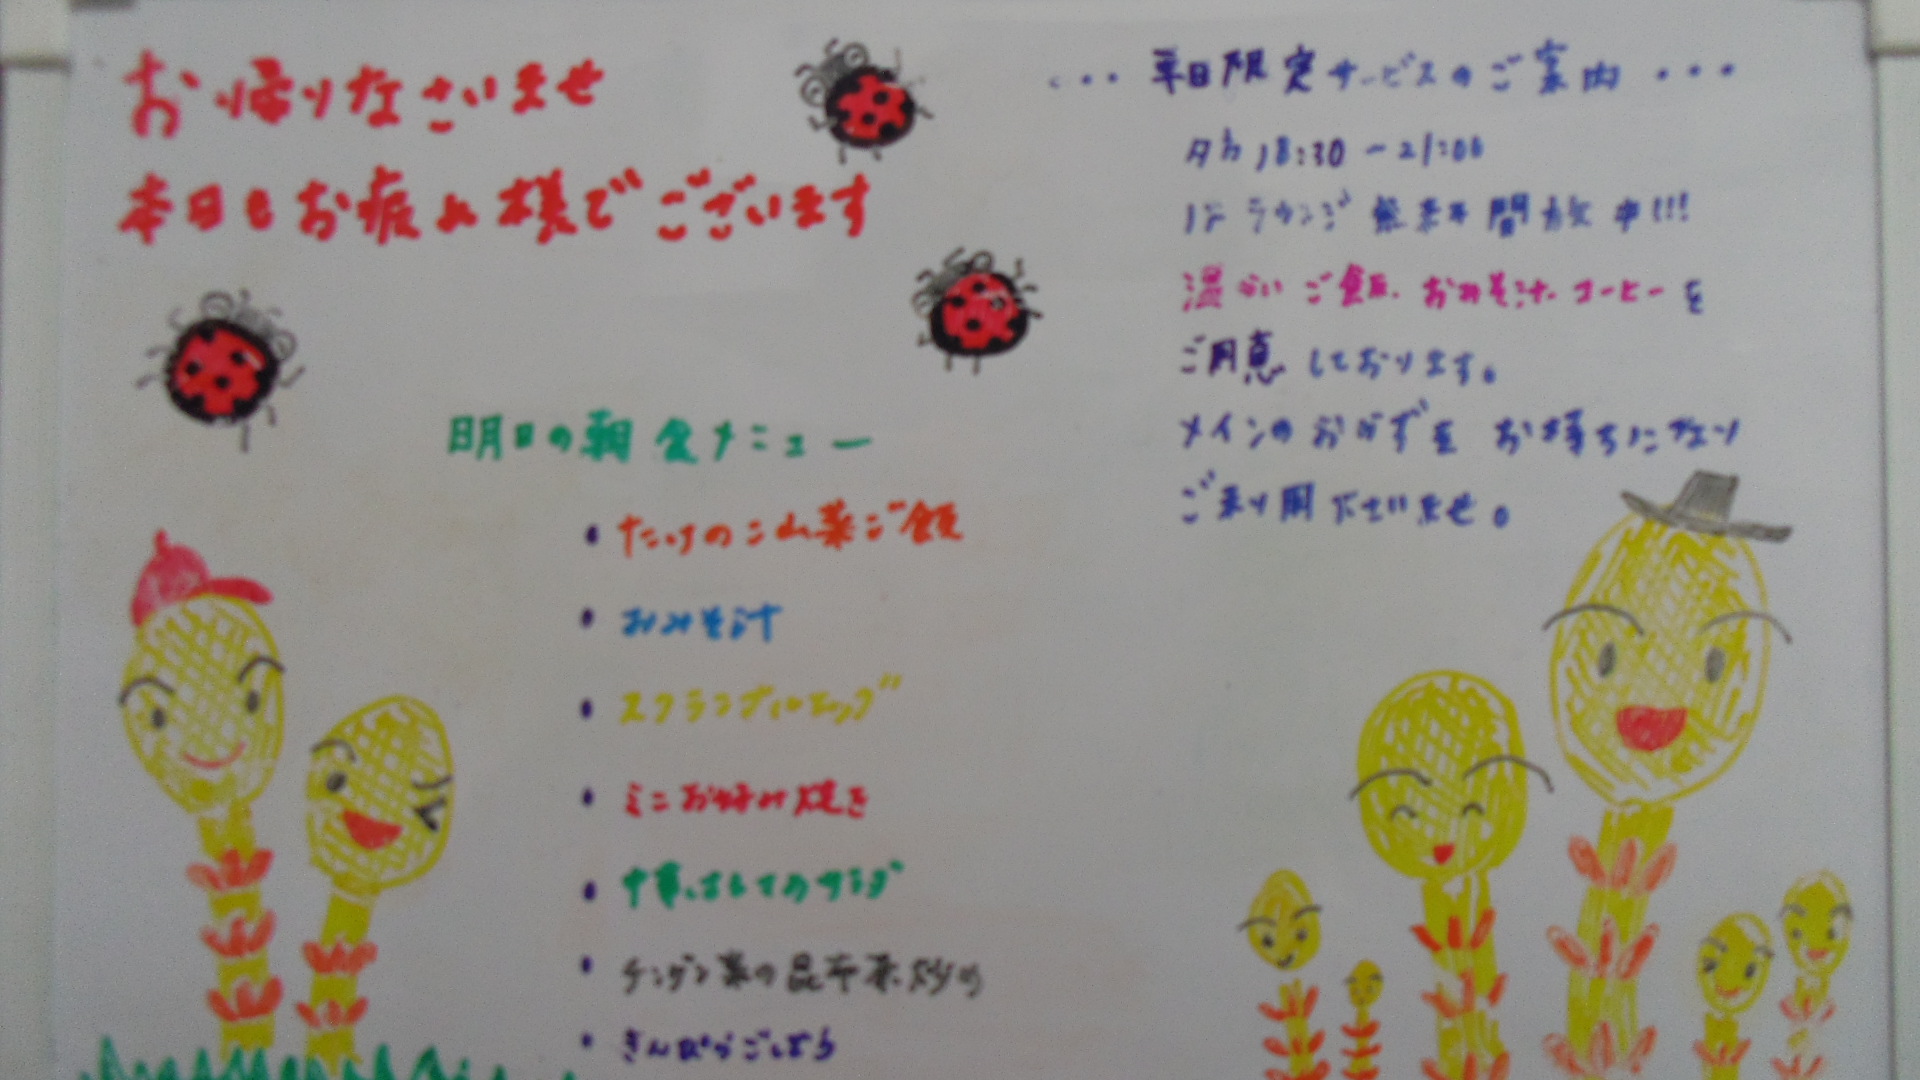 お帰りなさいませ
本日もお疲れ様でございます
明日の朝食メニュー
・たけのこ山菜ご飯
・おみそ汁
・スクランブルエッグ
・ミニお好み焼き
・中華はるさめサラダ
・チンゲン菜の昆布茶炒め
・きんぴらごぼう
・・・平日限定サービスのご案内・・・
夕方18:30~21:00
1F ラウンジ 無料開放中!!!
温かいご飯、おみそ汁、コーヒーを
ご用意しております。
メインのおかずを お持ちになり
ご利用下さいませ。